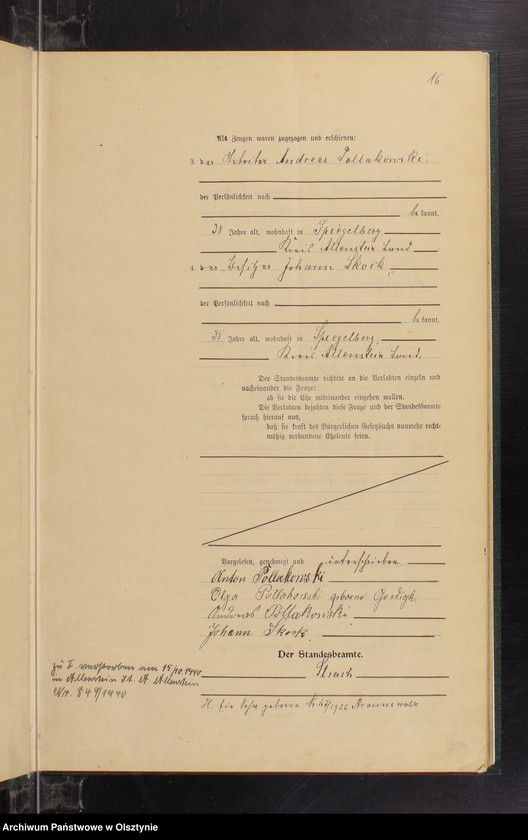 16
Als Zeugen waren zugezogen und erschienen:
3. der Arbeiter Andreas Pollakowski
der Persönlichkeit nach
bekannt,
38 Jahre alt, wohnhaft in Spiegelberg
Kreis Allenstein Land
4. der Besitzer Johann Skock,
der Persönlichkeit nach
bekannt,
35 Jahre alt, wohnhaft in Spiegelberg,
Kreis Allenstein Land.
Der Standesbeamte richtete an die Verlobten einzeln und
nacheinander die Frage:
ob sie die Ehe miteinander eingehen wollen.
Die Verlobten bejahten diese Frage und der Standesbeamte
sprach hierauf aus,
daß sie kraft des Bürgerlichen Gesetzbuchs nunmehr recht-
mäßig verbundene Eheleute seien.
Vorgelesen, genehmigt und unterschrieben
Anton Pollakowski
Olga Pollakowski geborene
Andreas Pollakowski
Johann Skock.
Der Standesbeamte.
zu I verstorben am 15/10.1940
in Allenstein St. A. Allenstein
Nr. 849/1940
Ein Sohn geboren
Archiwum Państwowe w Olsztynie